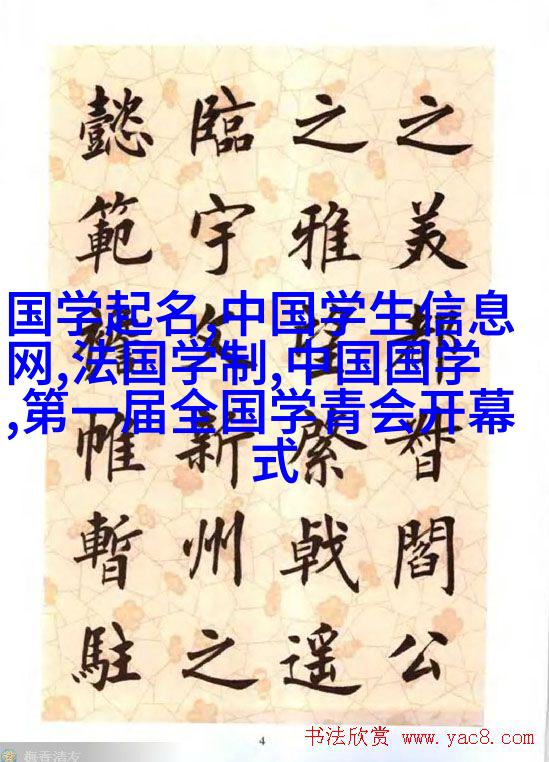 之美都督閻公
之雅望棨戟遥
臨宇文新州之
懿範襜帷暫駐
国学起名,中国学生信息
网,法国学制,中国国学
,第一届全国学青会开幕
式
4
书法欣赏 www.yac8.com
梅香清友